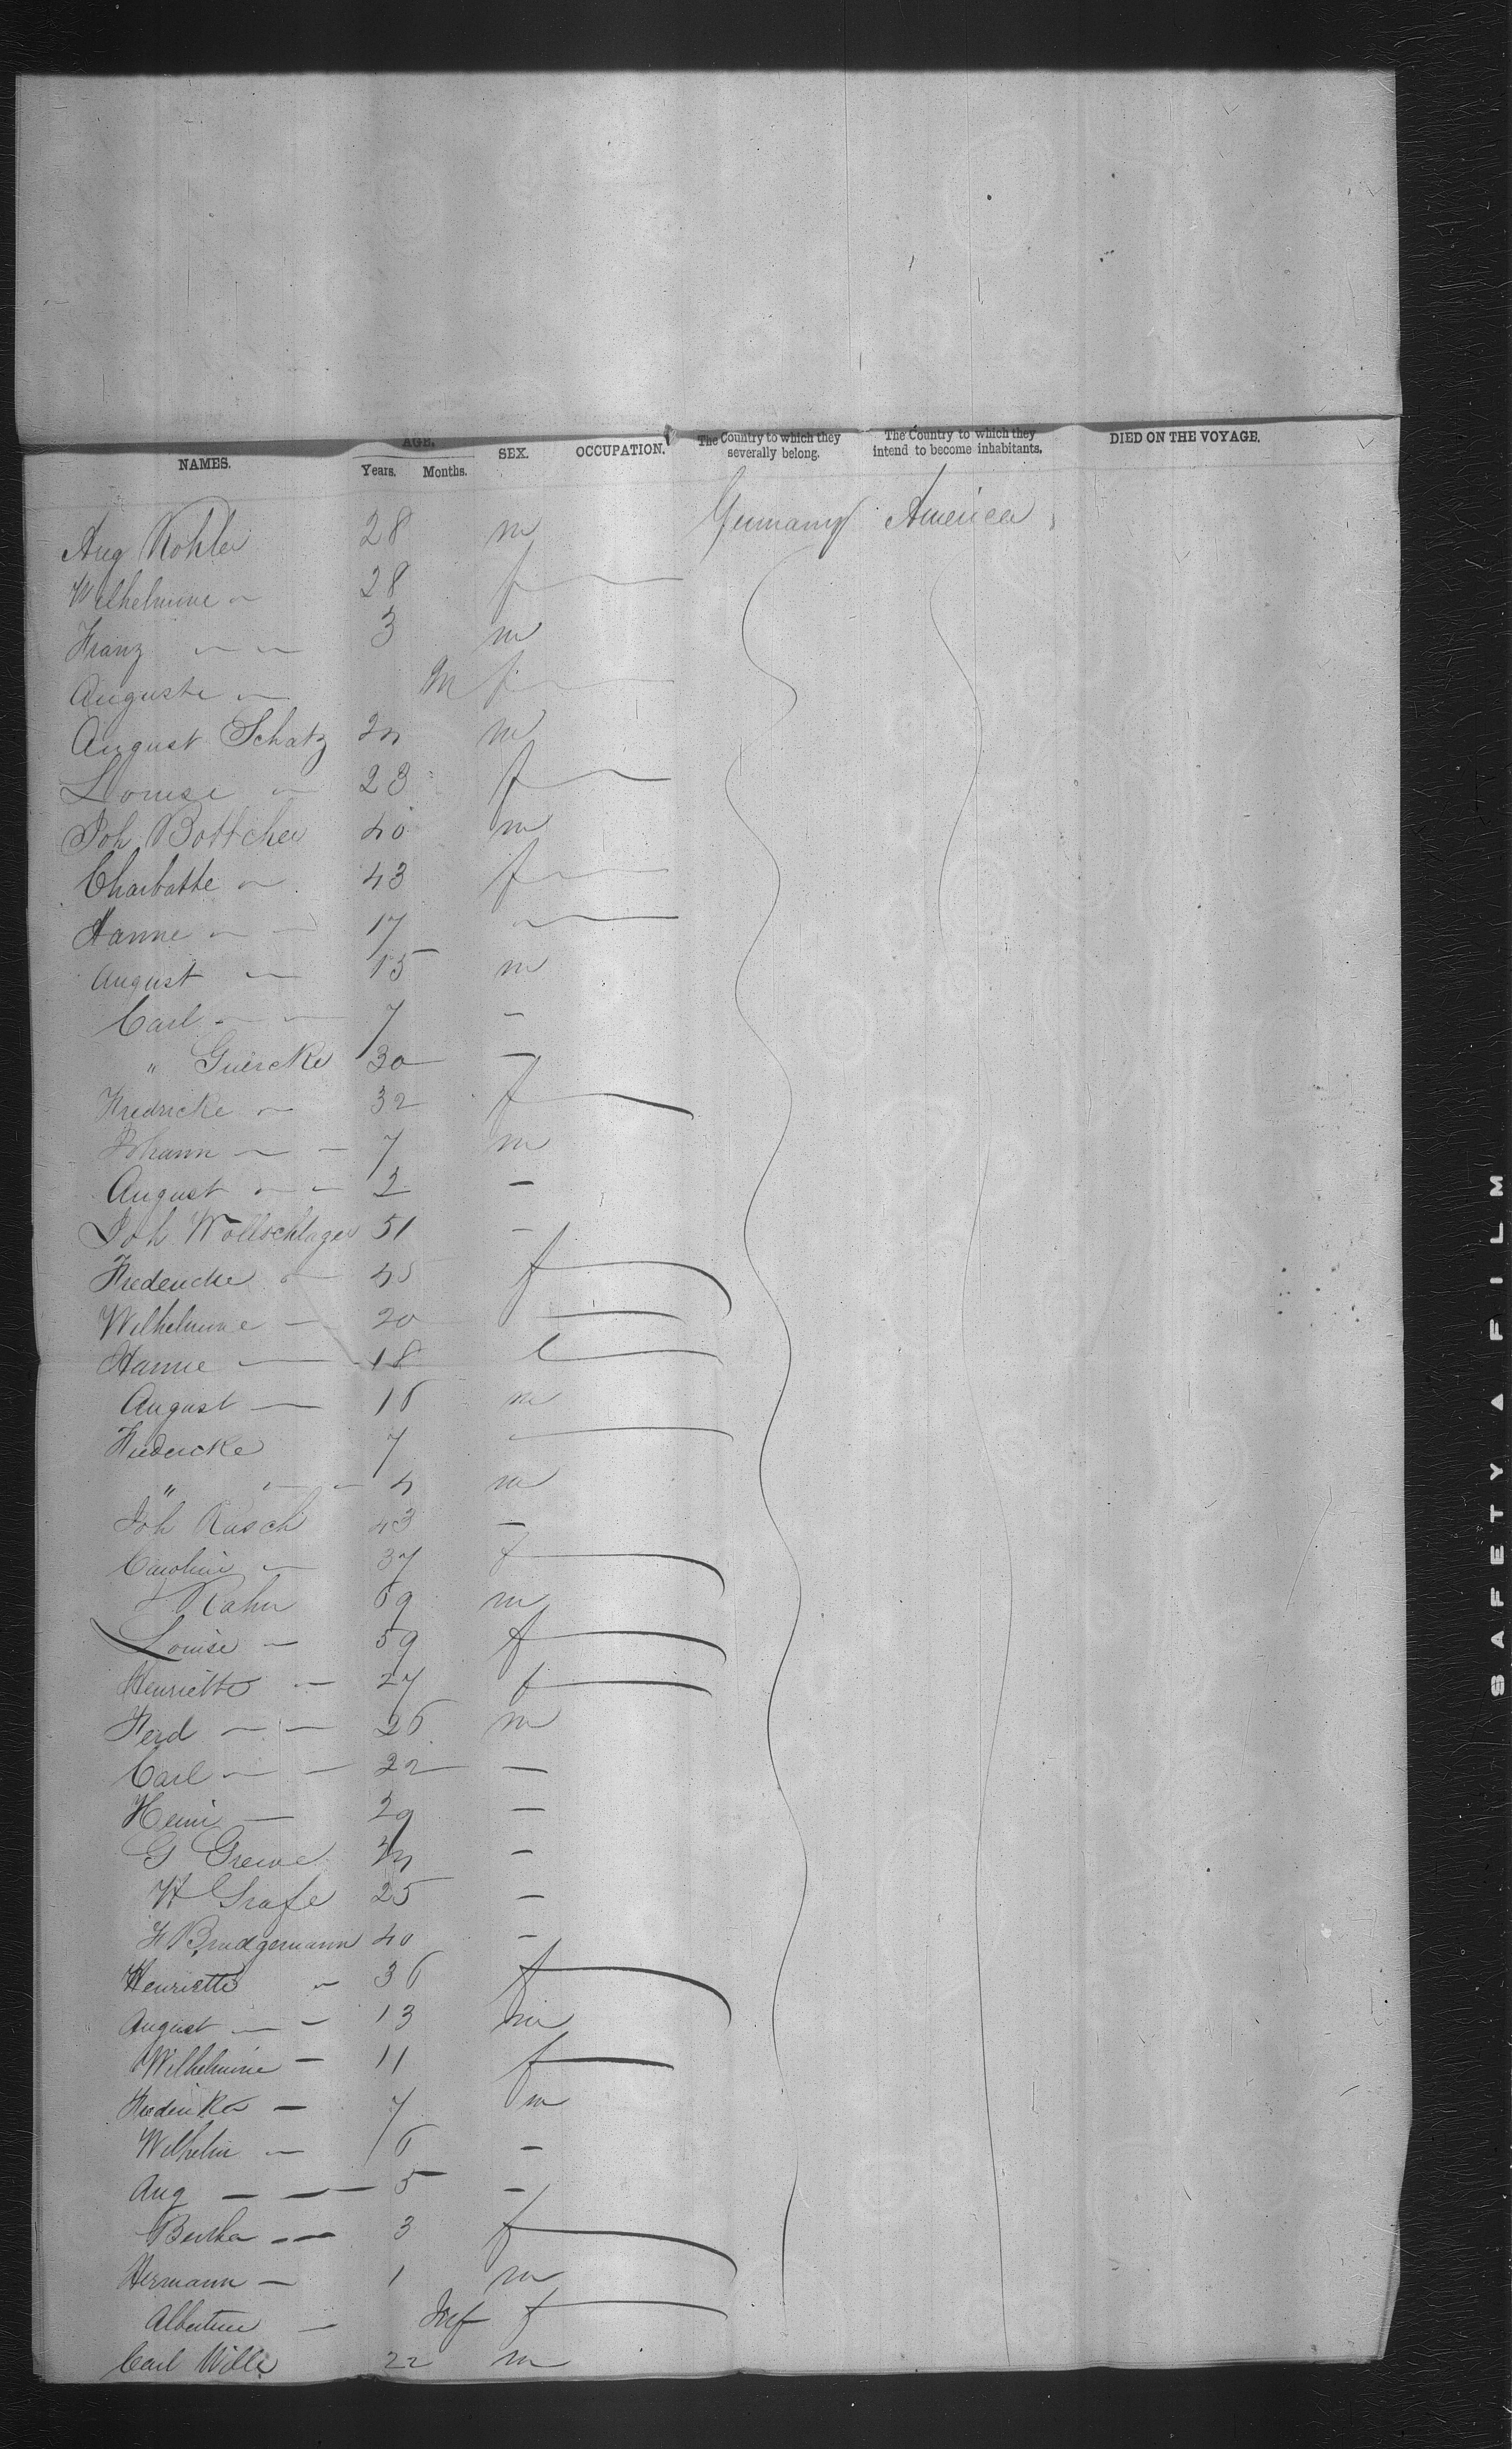 NAMES. AGE. Years. Months. SEX. OCCUPATION. The Country to which they severally belong. The Country to which they intend to become inhabitants. DIED ON THE VOYAGE.
Aug Kohler 28 m Germany America
Wilhelmine " 28 f
Franz " " 3 m
Auguste " f
August Schatz 24 m
Louise " 23 f
Joh Bottcher 40 m
Charlotte " 43 f
Hanne " 17 "
August " 15 m
Carl " 7 -
" Guercke 30 -
Fredricke " 32 f
Johann " - 7 m
August " - 2 -
Joh Wollschlager 51 -
Fredericke " 45 f
Wilhelmine - 20
Hanne - 18
August - 16 m
Fredericke 7
" " - 4 m
Joh Rasch 43 -
Caroline - 37 f
Rahn 69 m
Louise - 59 f
Henriette - 27 f
Ferd - - 26 m
Carl - - 22 -
Heinr - 29 -
G Grewe -
H Grafe 25 -
F Brudgemann 40 -
Henriette " 36 f
August - - 13 m
Wilhelmine - 11 f
Frederike - 7 m
Wilhelm - 6 -
Aug - - - 5 -
Bertha - - 3 f
Hermann - 1 m
Albertine - Inf f
Carl Wille 22 m
SAFETY A FILM